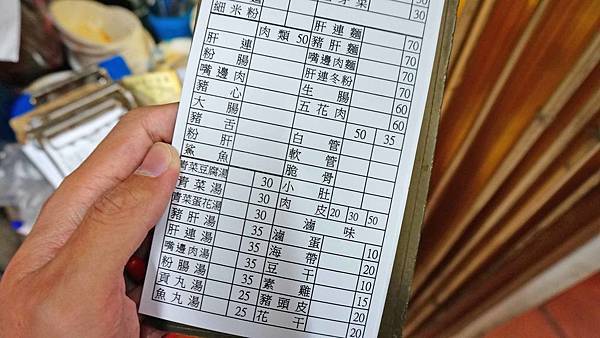 細米粉 30
肉類 50
肝連
粉腸
嘴邊肉
豬心
大腸
豬舌
粉肝
鯊魚
青菜豆腐湯
青菜湯 30
青菜蛋花湯 30
豬肝湯 30
肝連湯 35
嘴邊肉湯 35
粉腸湯 35
貢丸湯 25
魚丸湯 25
50
30
肝連麵 70
豬肝麵 70
嘴邊肉麵 70
肝連冬粉 70
生腸 60
五花肉 60
50 35
白管
軟管
脆骨
小肚
肉皮 20 30 50
滷味
滷蛋 10
海帶 20
豆干 10
素雞 15
豬頭皮 20
花干 20